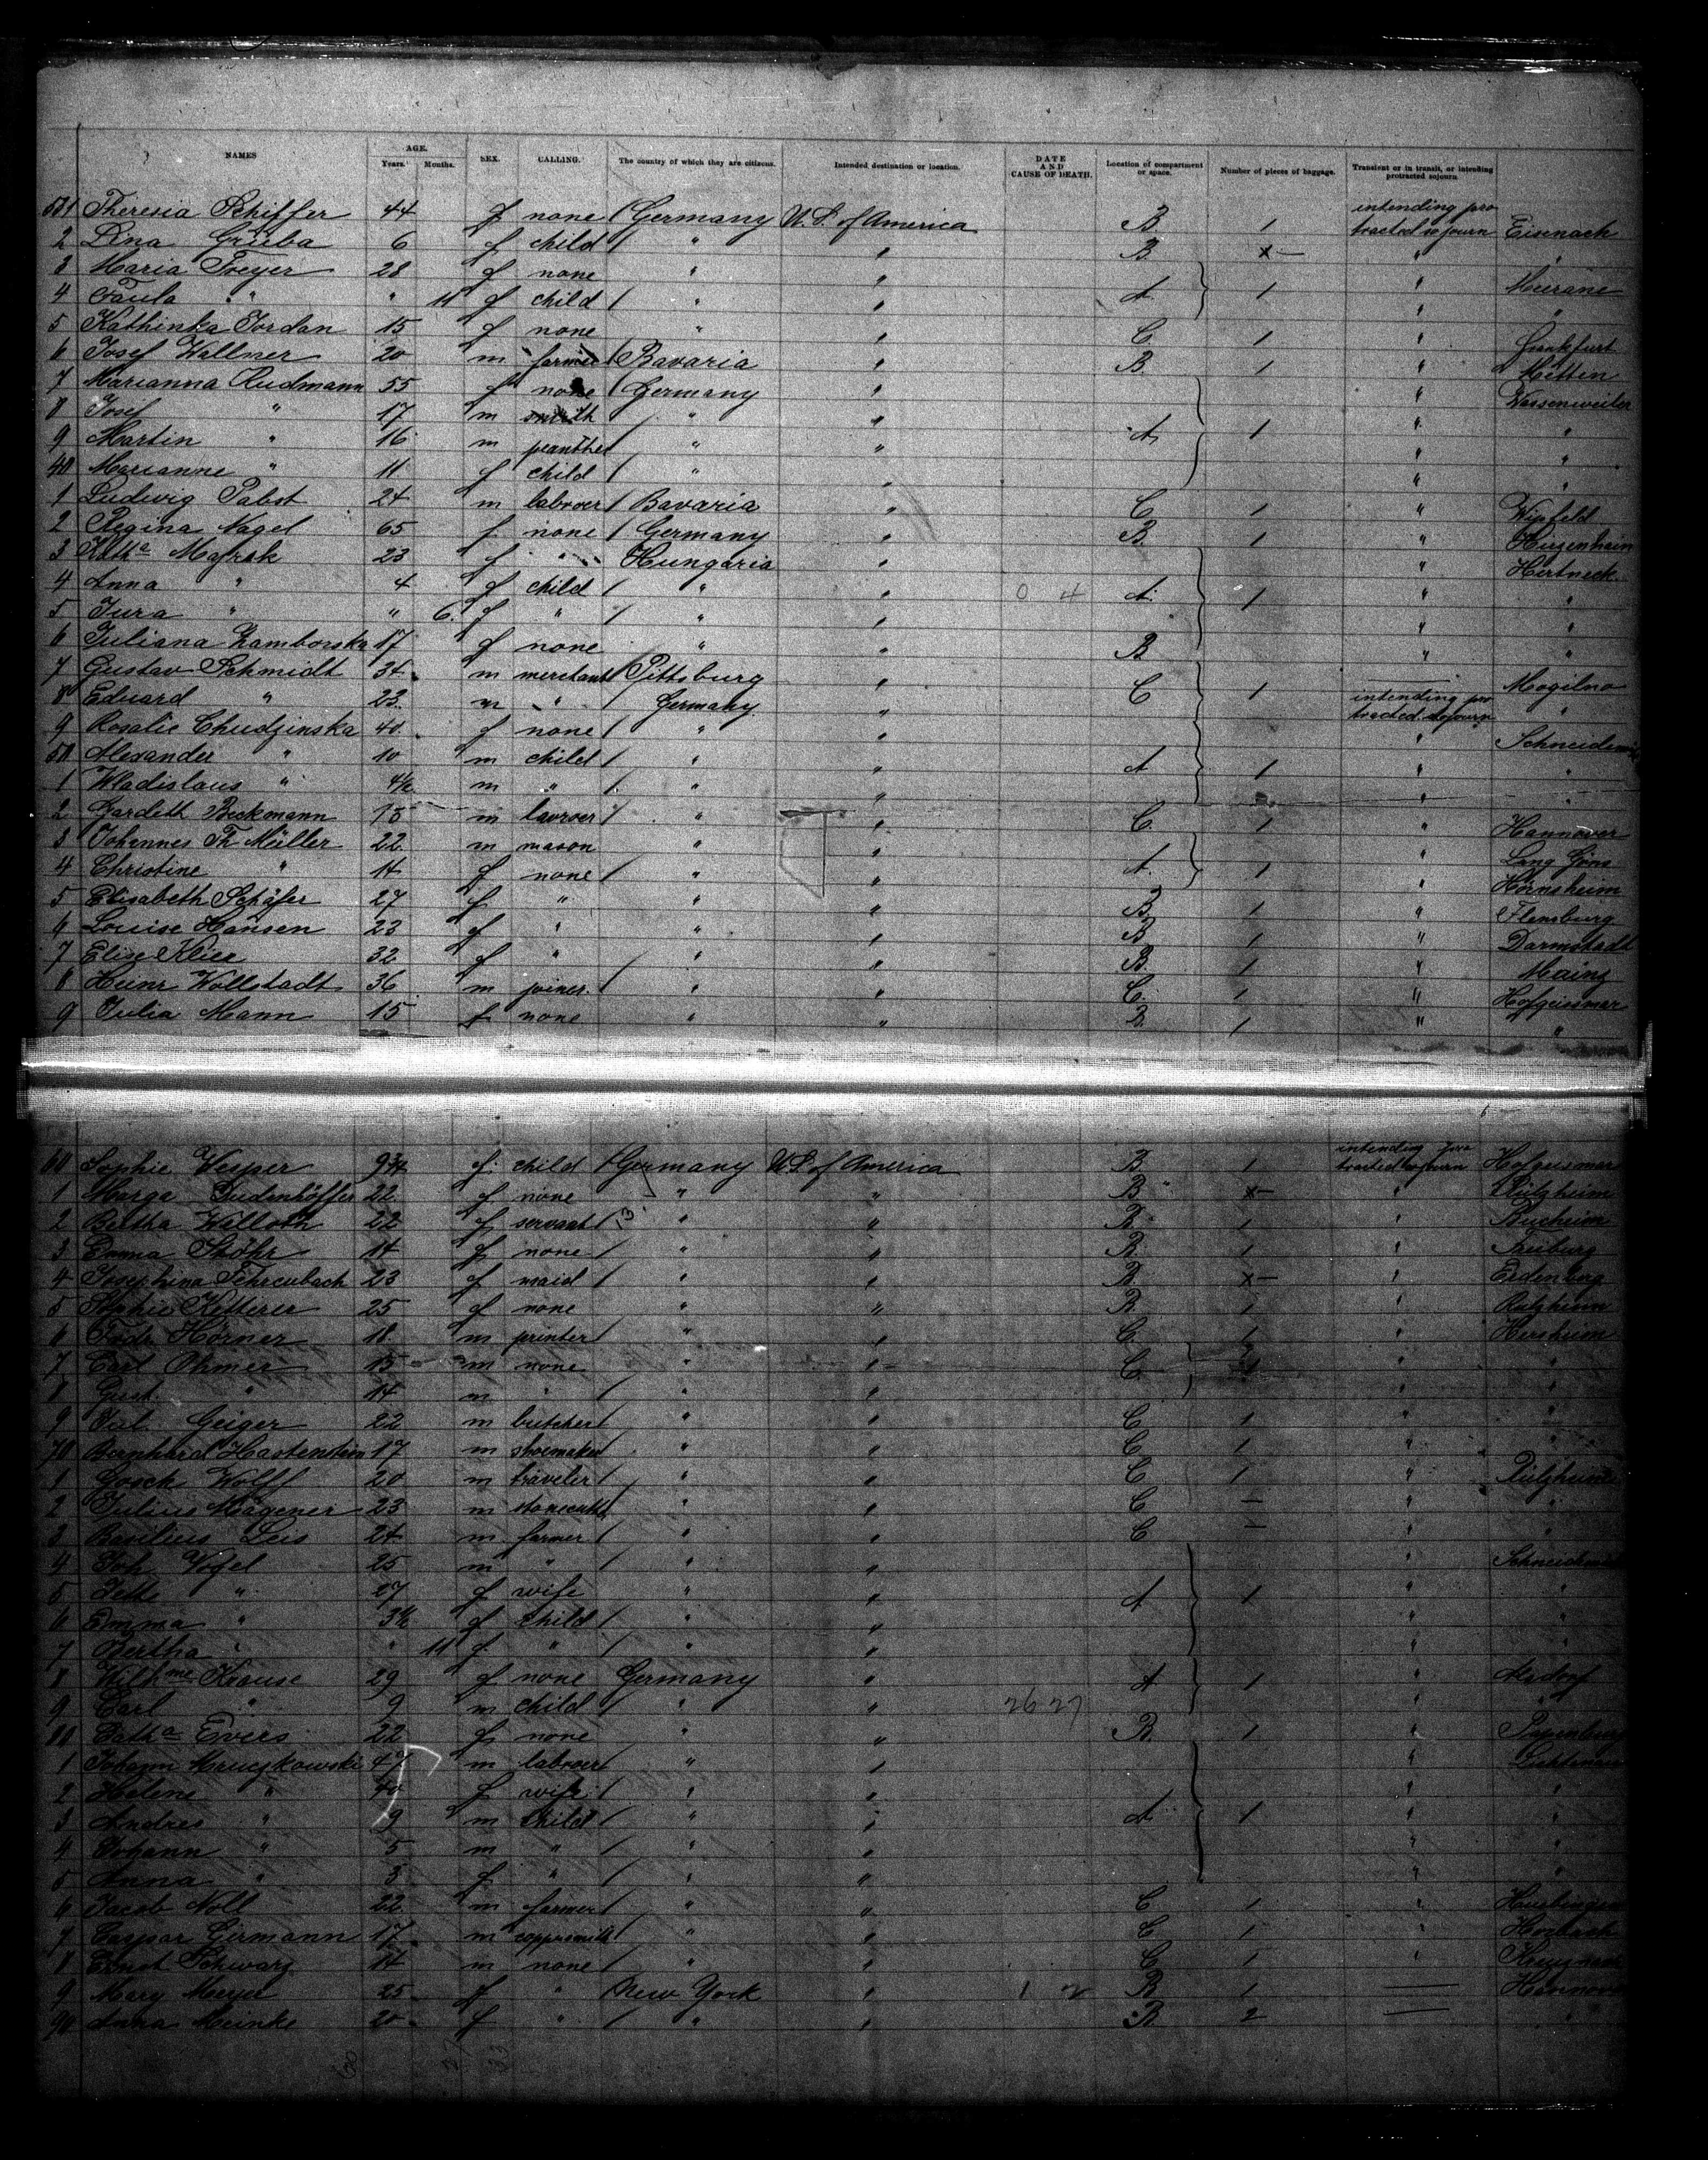 NAMES AGE. Years. Months. SEX. CALLING. The country of which they are citizens. Intended destination or location. DATE AND CAUSE OF DEATH. Location of compartment or space. Number of pieces of baggage. Transient or in transit, or intending protracted sojourn
531 Theresia Schiffer 44 f none Germany U.S. of America B 1 intending protracted sojourn Eisenach
2 Lina Grüba 6 f child " " B x — " "
3 Maria Freyer 28 f none " " " Meerane
4 Paula " " 11 f child " " A 1 " "
5 Kathinka Jordan 15 f none " " C 1 " Frankfurt
6 Josef Wallner 20 m farmer Bavaria " B 1 " Metten
7 Marianna Rudmann 55 f none Germany " " Wassenweiler
8 Josef " 17 m smith " " " "
9 Martin " 16 m " " A 1 " "
40 Marianne " 11 f child " " " "
1 Ludwig Pabst 24 m labroer Bavaria " C 1 " Wipfeld
2 Regina Nagel 65 f none Germany " B 1 "
3 Kath^a Majrak 23 f " Hungaria " " Hertneck
4 Anna " 4 f child " " 0 4 A 1 " "
5 Jura " " 6 f " " " " "
6 Juliana Zamborska 17 f none " " B " "
7 Gustav Schmidt 34 m merchant Pittsburg " — Mogilno
8 Eduard " 23 m " Germany " C 1 intending protracted sojourn "
9 Rosalie Chudzinska 40 f none " " "
50 Alexander " 10 m child " " A 1 " "
1 Wladislaus " 4½ m " " " " "
2 Gardeth Beckmann 15 m " " C 1 " Hannover
3 Johannes Th Müller 22 m mason " " " Lang Göns
4 Christine " 14 f none " " A 1 " Hörnsheim
5 Elisabeth Schäfer 27 f " " " B 1 " Flensburg
6 Louise Hansen 23 f " " " B 1 " Darmstadt
7 Elise Klier 32 f " " " B 1 " Mainz
8 Heinr Wollstadt 36 m joiner " " C 1 " Hofgeismar
9 Julia Mann 15 f none " " B 1 " "
60 Sophie Vesper 9¾ f child Germany U.S. of America B 1 intending protracted sojourn Hofgeismar
1 Marga Dudenhöffer 22 f none " " B x — "
2 Bertha Walloth 22 f servant " " B 1 "
3 Emma Stöhr 14 f none " " B 1 " Freiburg
4 Josephina Fehrenbach 23 f maid " " B x — "
5 Sophie Ketterer 25 f none " " B 1 "
6 Fried. Hörner 18 m printer " " C 1 "
7 Carl Ohmer 15 m none " " C 1 " "
8 Gust. " 14 m " " " " "
9 Jul. Geiger 22 m butcher " " C 1 " "
70 Bernhard Hastenstein 17 m shoemaker " " C 1 " "
1 Gosch Wolff 20 m traveler " " C 1 "
2 Julius Wagener 23 m stonecutter " " C — " "
3 Basilius Leis 24 m farmer " " C — " "
4 Joh Vogel 25 m " " " "
5 Jette " 27 f wife " " A 1 " "
6 Emma " 3½ f child " " " "
7 Bertha " " 11 f " " " " "
8 Wilh^me Krause 29 f none Germany " A 1 " Alsdorf
9 Carl " 9 m child " " 26 27 " "
80 Cath^a Evers 22 f none " " B 1 " Papenburg
1 Johann Mruczkowski 47 m labroer " " "
2 Helene " 40 f wife " " " "
3 Andres " 9 m child " " A 1 " "
4 Johann " 5 m " " " " "
5 Anna " 3 f " " " " "
6 Jacob Noll 22 m farmer " " C 1 "
7 Caspar Girmann 17 m coppersmith " " C 1 "
8 Ernst Schwarz 14 m none " " C 1 "
9 Mary Meyer 25 f " New York " 1 2 B 1 — Hannover
90 Anna Meinke 20 f " " " B 2 — "